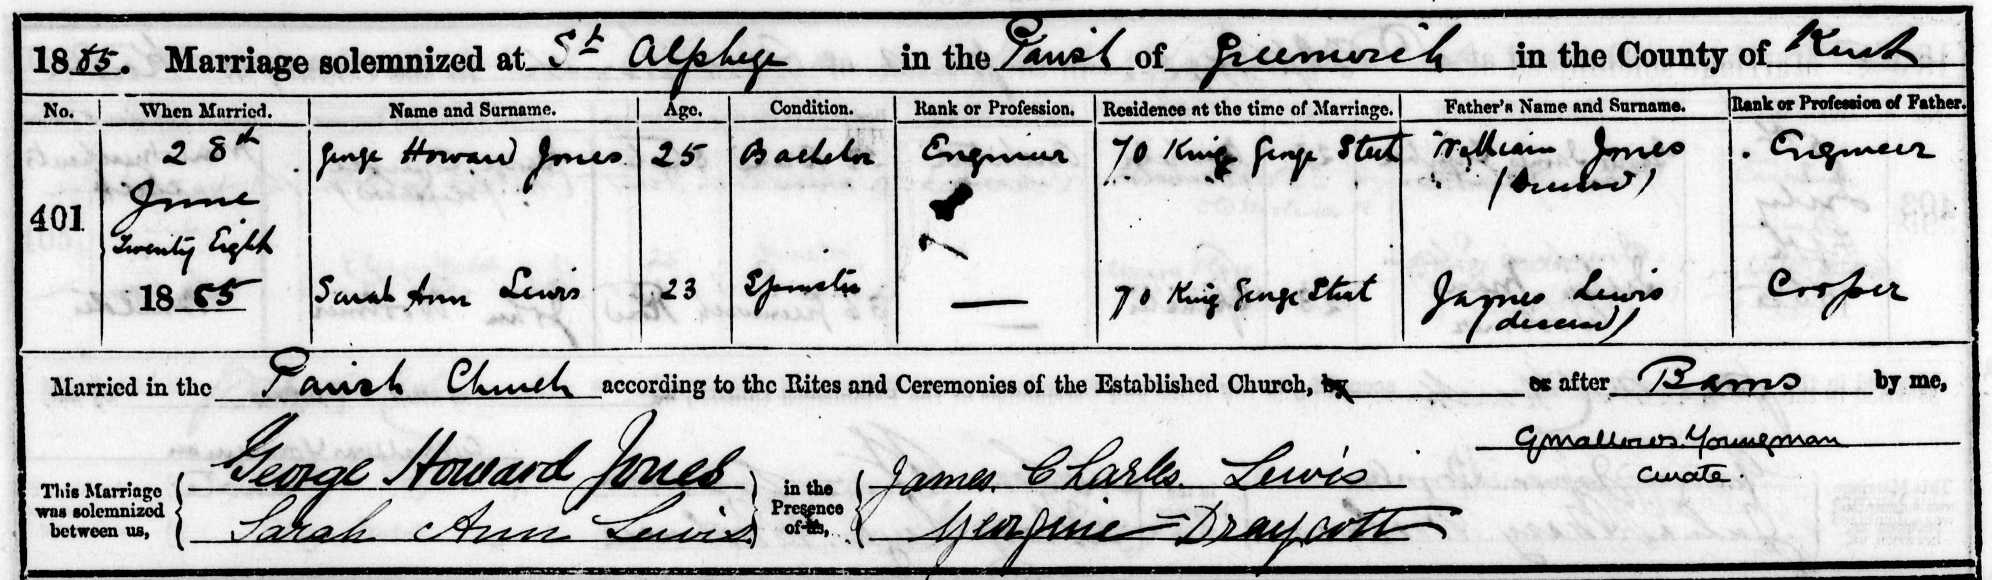 1885. Marriage solemnized at St Alphege in the Parish of Greenwich in the County of Kent
No. When Married. Name and Surname. Age. Condition. Rank or Profession. Residence at the time of Marriage. Father's Name and Surname. Rank or Profession of Father.
28th George Howard Jones 25 Bachelor Engineer 70 King George Street William Jones Engineer
June (deceased)
401
Twenty Eight
1885 Sarah Ann Lewis 23 Spinster — 70 King George Street James Lewis Cooper
(deceased)
Married in the Parish Church according to the Rites and Ceremonies of the Established Church, by or after Banns by me,
G Mallows Youngman
curate.
This Marriage was solemnized between us, George Howard Jones in the Presence of us, James Charles Lewis
Sarah Ann Lewis Georgine Draycott